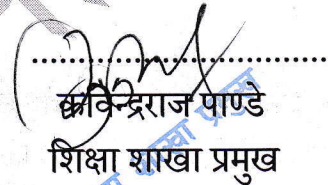 कविन्द्रराज पाण्डे
शिक्षा शाखा प्रमुख
शाखा प्रमुख